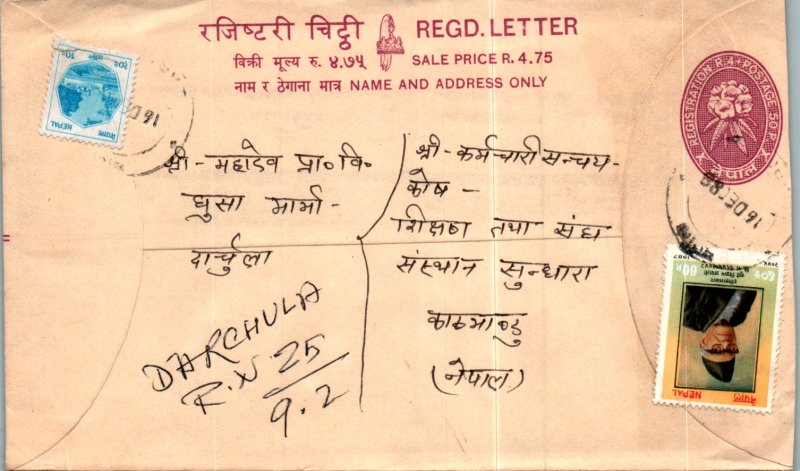 रजिष्टरी चिट्ठी REGD. LETTER
विक्री मूल्य रु. ४.७५ SALE PRICE R. 4.75
नाम र ठेगाना मात्र NAME AND ADDRESS ONLY
REGISTRATION R.4 + POSTAGE 50 P.
नेपाल
10P.
१०प.
NEPAL
नेपाल
16 DEC 88
श्री - महादेव प्रा० वि०
घुसा मार्मा -
दार्चुला
श्री - कर्मचारी सन्चय -
कोष -
तथा संघ
संस्थान सुन्धारा
काठमाण्डु
(नेपाल)
DARCHULA
R.N 25
9.2
60P
६०प.
1987
NEPAL
नेपाल